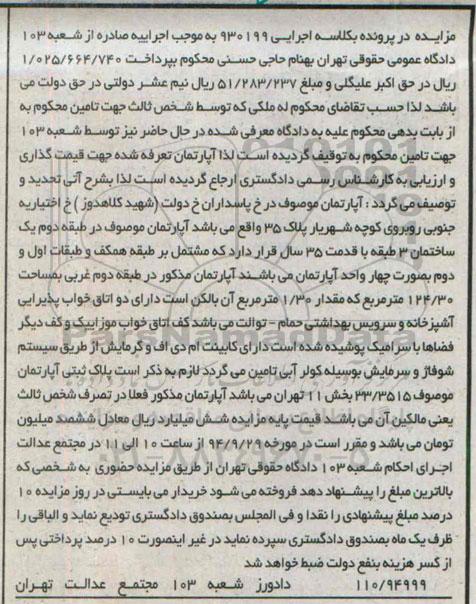 مزایده در پرونده بکلاسه اجرایی ۹۳۰۱۹۹ به موجب اجراییه صادره از شعبه ۱۰۳
دادگاه عمومی حقوقی تهران بهنام حاجی حسنی محکوم بپرداخت ۱/۰۲۵/۶۶۴/۷۴۰
ریال در حق اکبر علیگلی و مبلغ ۵۱/۲۸۳/۲۳۷ ریال نیم عشر دولتی در حق دولت می
باشد لذا حسب تقاضای محکوم له ملکی که توسط شخص ثالث جهت تامین محکوم به
از بابت بدهی محکوم علیه به دادگاه معرفی شده در حال حاضر نیز توسط شعبه ۱۰۳
جهت تامین محکوم به توقیف گردیده است لذا آپارتمان تعرفه شده جهت قیمت گذاری
و ارزیابی به کارشناس رسمی دادگستری ارجاع گردیده است لذا بشرح آتی تحدید و
توصیف می گردد : آپارتمان موصوف در خ پاسداران خ دولت (شهید کلاهدوز) خ اختیاریه
جنوبی روبروی کوچه شهریار پلاک ۳۵ واقع می باشد آپارتمان موصوف در طبقه دوم یک
ساختمان ۳ طبقه با قدمت ۳۵ سال قرار دارد که مشتمل بر طبقه همکف و طبقات اول و
دوم بصورت چهار واحد آپارتمان می باشند آپارتمان مذکور در طبقه دوم غربی بمساحت
۱۲۴/۳۰ مترمربع که مقدار ۱/۳۰ مترمربع آن بالکن است دارای دو اتاق خواب پذیرایی
آشپزخانه و سرویس بهداشتی حمام - توالت می باشد کف اتاق خواب موزاییک و کف دیگر
فضاها با سرامیک پوشیده شده است دارای کابینت ام دی اف و گرمایش از طریق سیستم
شوفاژ و سرمایش بوسیله کولر آبی تامین می گردد لازم به ذکر است پلاک ثبتی آپارتمان
موصوف ۳۳/۳۵۱۵ بخش ۱۱ تهران می باشد آپارتمان مذکور فعلا در تصرف شخص ثالث
یعنی مالکین آن می باشد قیمت پایه مزایده شش میلیارد ریال معادل ششصد میلیون
تومان می باشد و مقرر است در مورخه ۹۴/۹/۲۹ از ساعت ۱۰ الی ۱۱ در مجتمع عدالت
اجرای احکام شعبه ۱۰۳ دادگاه حقوقی تهران از طریق مزایده حضوری به شخصی که
بالاترین مبلغ را پیشنهاد دهد فروخته می شود خریدار می بایستی در روز مزایده ۱۰
درصد مبلغ پیشنهادی را نقدا و فی المجلس بصندوق دادگستری تودیع نماید و الباقی را
ظرف یک ماه بصندوق دادگستری سپرده نماید در غیر اینصورت ۱۰ درصد پرداختی پس
از کسر هزینه بنفع دولت ضبط خواهد شد
۱۱۰/۹۴۹۹۹ دادورز شعبه ۱۰۳ مجتمع عدالت تهران